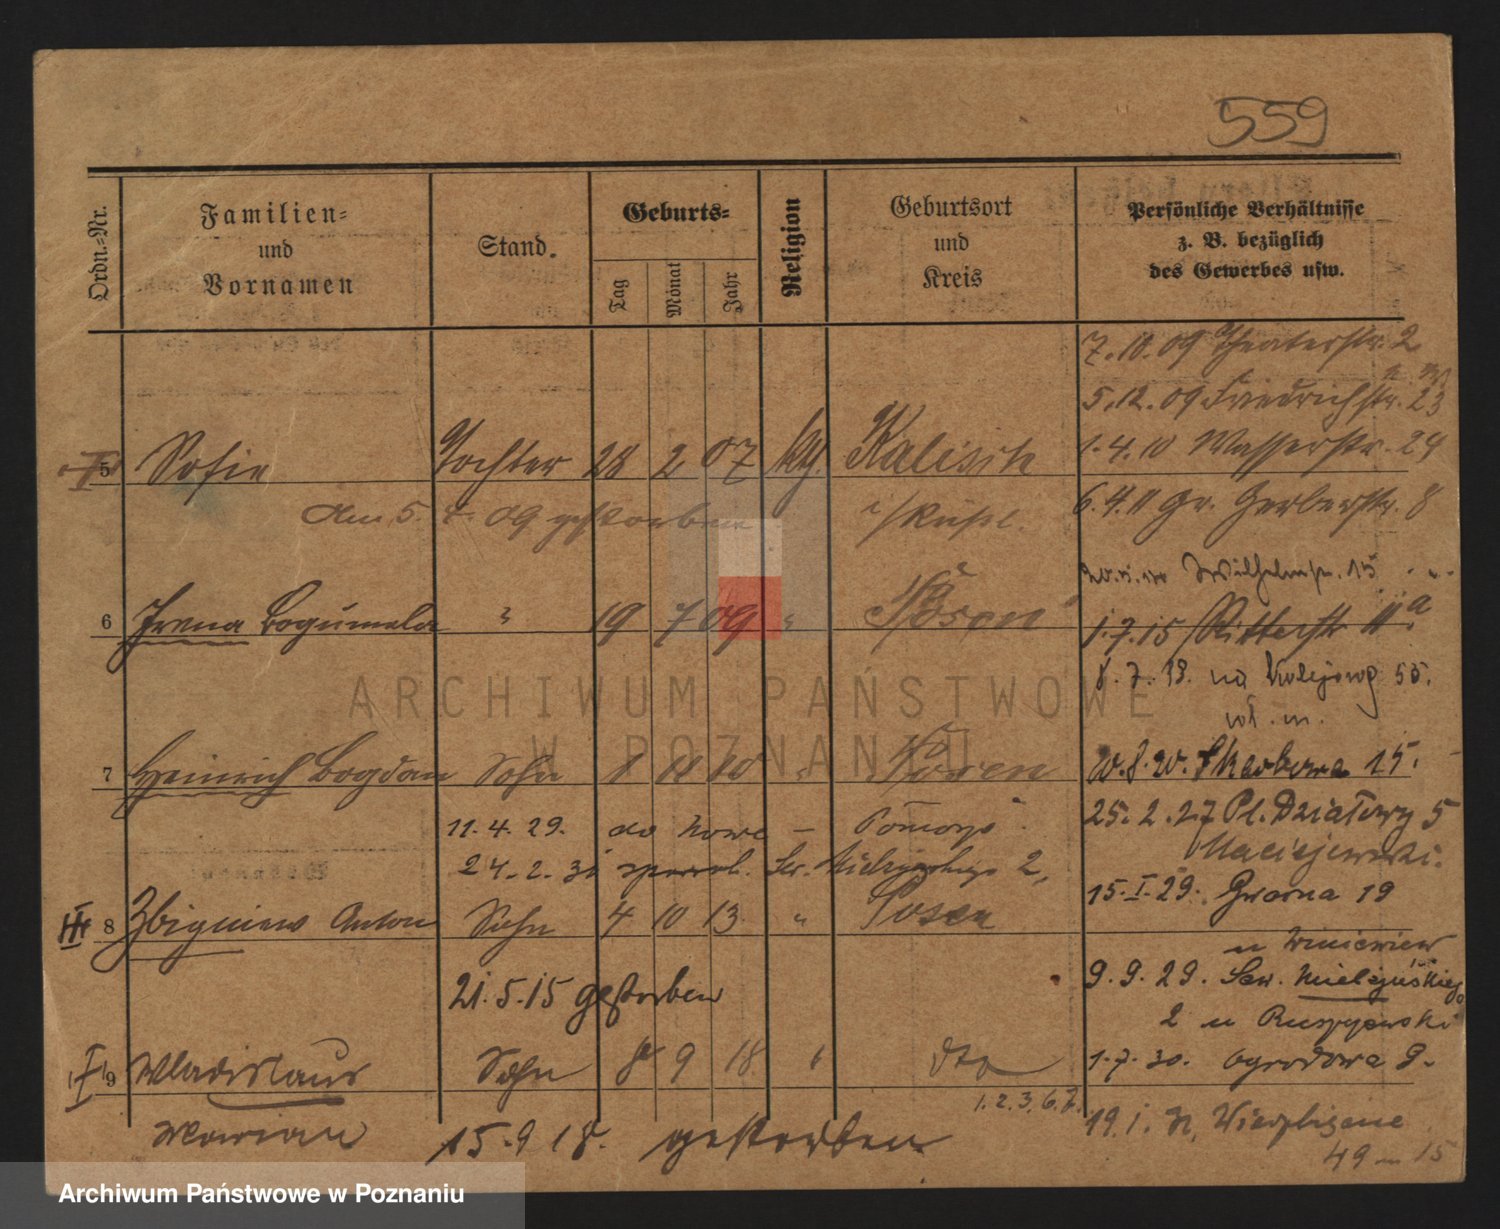 559
Ordn.-Nr.
Familien-
und
Vornamen
Stand.
Geburts-
Tag
Monat
Jahr
Religion
Geburtsort
und
Kreis
Persönliche Verhältnisse
z. B. bezüglich
des Gewerbes usw.
7.10.09 Theaterstr. 2
5.12.09 Friedrichstr. 23
1.4.10 Wasserstr. 24
5 Sofie Tochter 28 2 07 Kalisch
6.4.11 Gr. Gerberstr. 8
gestorben
Wilhelmstr. 15
6 Irena Bogumela " 19 7 09 " Posen
1.7.15 Ritterstr. 11a
8.7.19. na Kolejową 55.
7 Heinrich Bogdan Sohn 8 11 10 " Posen
Skarbowa 15.
11.4.29. do Nowe – Pomorze
25.2.27 Pl. Działowy 5
Maciejewski.
24.2.31 Sew. Mielżyńskiego 2,
15.I.29. Gwarna 19
III 8 Zbigniew Anton Sohn 4 10 13 " Posen
u Winiewicz
21.5.15 gestorben
9.9.29. Sew. Mielżyńskiego
2 u
I 9 Wladislaus Sohn 8 9 18 dto
1.7.30. Ogrodowa 9.
1.2.3.6.7.
Marian 15.9.18. gestorben
49 m 15
ARCHIWUM PAŃSTWOWE
W POZNANIU
Archiwum Państwowe w Poznaniu